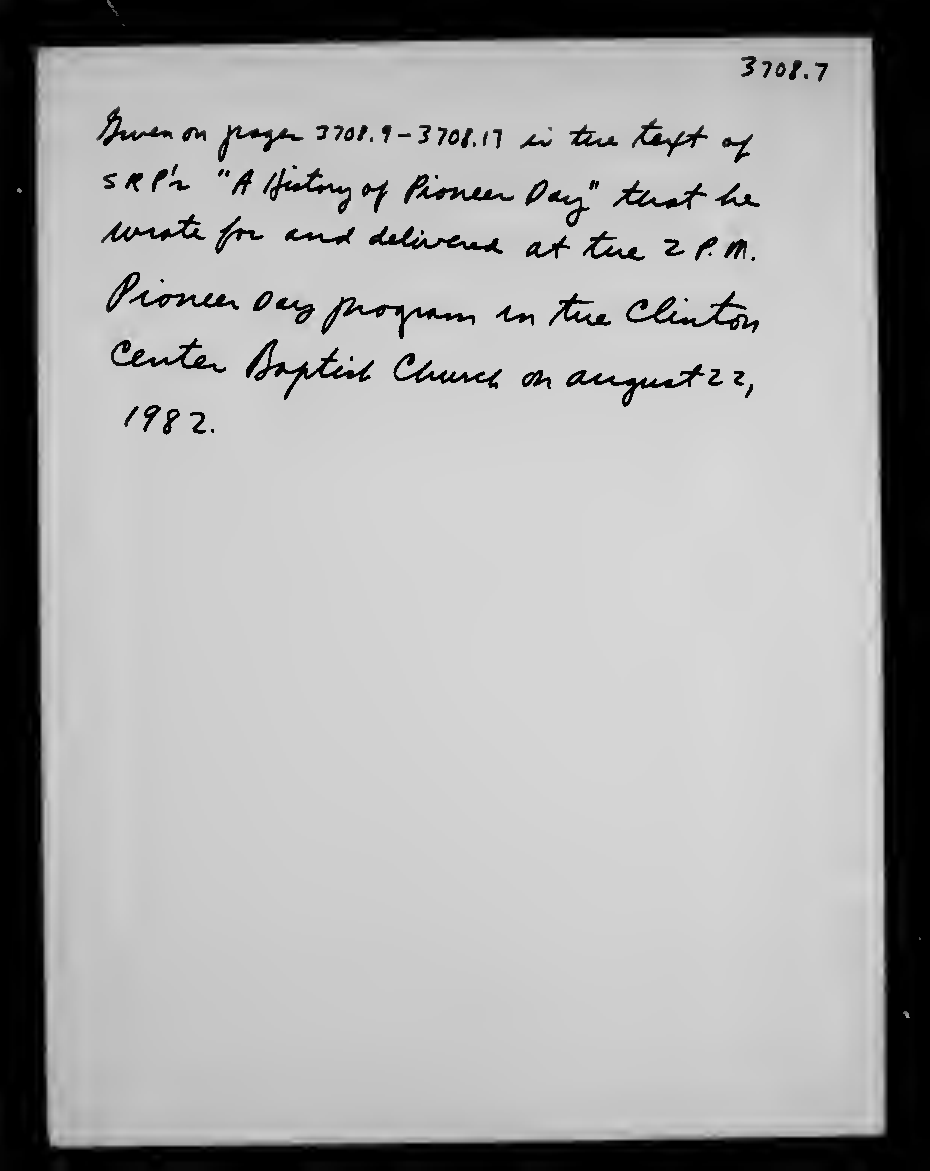 3708.7
Given on pages 3708.9-3708.17 is the text of
SRP's "A History of Pioneer Day" that he
wrote for and delivered at the 2 P.M.
Pioneer Day program in the Clinton
Center Baptist Church on August 22,
1982.